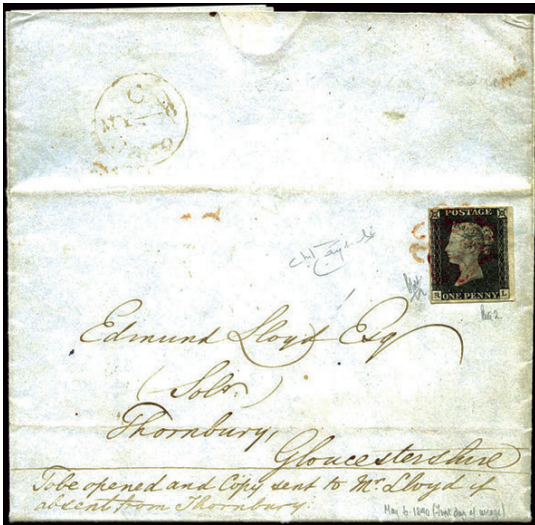 C
MY
POSTAGE
ONE PENNY L
Edmund Lloyd Esq
(Solr.)
Thornbury,
Gloucestershire
To be opened and Copy sent to Mr. Lloyd if
absent from Thornbury
May 6. 1840 (First day of usage)